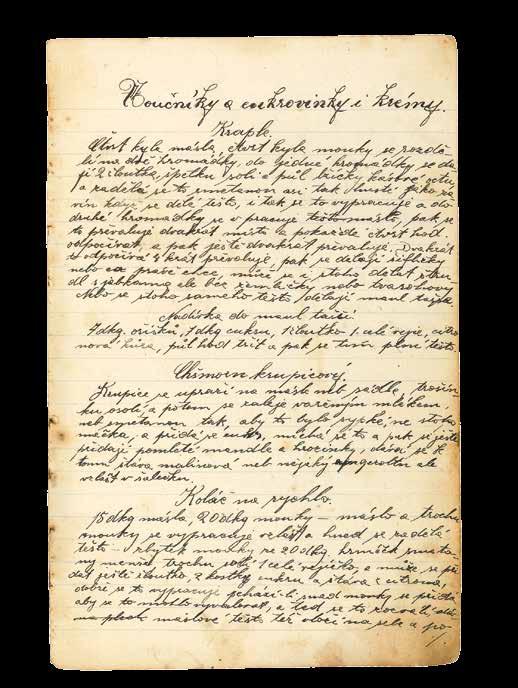 Moučníky a cukrovinky i krémy.
Kraple.
Čtvrt kyla másla, čtvrt kyla mouky se rozdě-
lí na dvě hromádky, do jedné hromádky se da-
jí 2 žloutka, špetku soli a půl lžičky octu,
a zadělá se to smetanou asi tak husté jako za
vin když se dělá těsto, i tak se to vypracuje a do
druhé hromádky se v pracuje těsto máslo, pak se
to převaluje dvakrát místo a pokaždé čtvrt hod.
odpočívat, a pak ještě dvakrát převaluje. Dvakrát
to odpočívá 4 krát převaluje, pak se dělají
nebo co prací chce, může se i z toho dělat štru
dl s jabkama ale bez žemličky nebo tvarohovy
Nebo se z toho samého těsta dělají maul tašle.
Nadívka do maul tašlí
7 dkg. oříšků, 7 dkg cukru, 1 žloutko 1 celé vejce, citro
nová kůra, půl hod třít a pak se tím plní těsto.
Šmorn krupicový.
Krupice se upraží na másle neb sádle, trošin-
ku osolí, a potom se zaleje vařeným mlékem
neb smetanou tak, aby to bylo rychle, ne z toho
máčka, a přidá se cukr, míchá se to a pak se ještě
přidají pomleté mandle a hrozinky, dává se k
tomu šťáva malinová neb nějaký ale
zvlášť v šálečku.
Koláč na rychlo.
15 dkg másla, 20 dkg mouky – máslo a trochu
mouky se vypracuje zvlášť a hned se zadělá
těsto – zbytek mouky ze 20 dkg. hrníček smeta-
ny menší trochu soli, 1 celé vejíčko, a může se při
dat ještě žloutko, 2 kostky cukru a šťáva z citronu,
dobře se to vypracuje snad mouky se přidá
aby se to mohlo vyválovat, a teď se to rozválí dá
na plech máslové těsto též vloží na sebe a po-